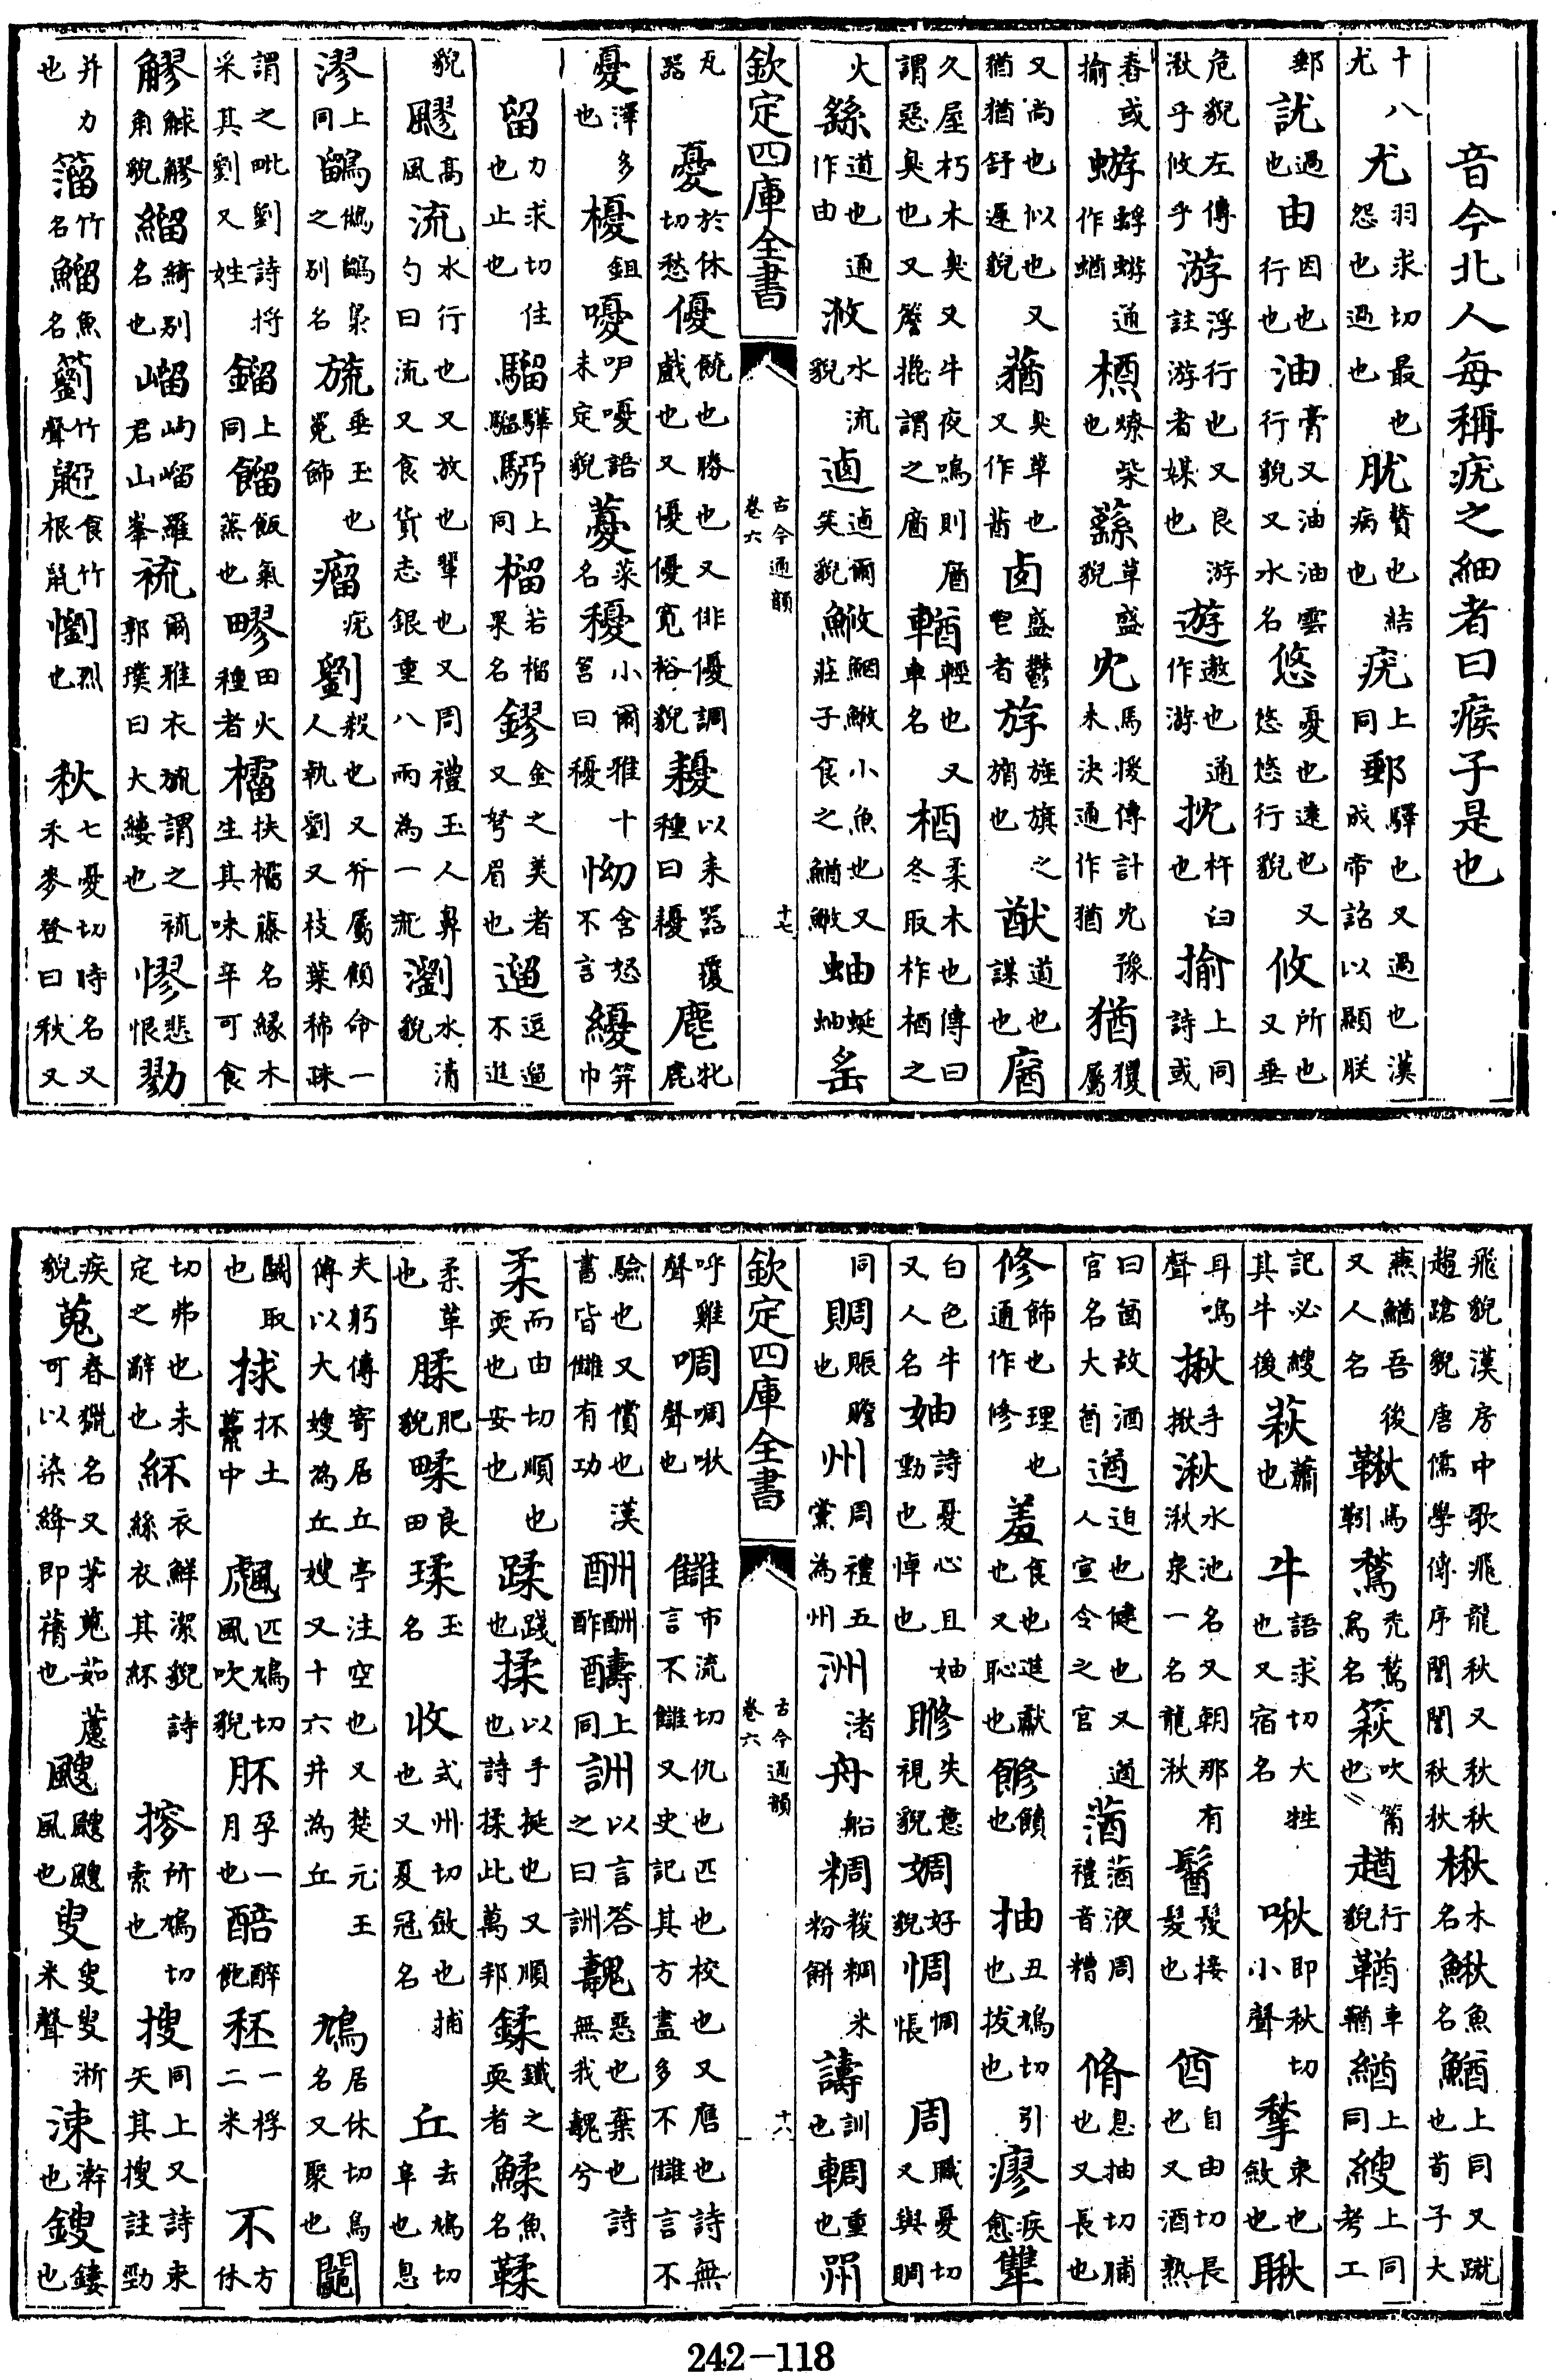 音今北人每稱疣之細者曰瘊子是也
十八尤 尤羽求切最也怨也過也 肬贅也結病也 疣上同 郵驛也又過也漢成帝詔以顯朕
郵 訧過也 由因也行也 油膏又油雲行貌又水名 悠憂也遠也又悠悠行貌 攸所也又垂
危貌左傳湫乎攸乎 游浮行也又良游註游者媒也 遊遨也通作游 抌杵臼也 揄上同詩或
舂或揄 蝣蜉蝣通作蝤 槱燎柴也 蘨草盛貌 冘馬援傳計冘豫未決通作猶 猶玃屬
又尚也似也又猶猶舒遲貌 蕕臭草也又作莤 卣盛鬱鬯者 斿旌旗之旓也 猷道也謀也 庮
久屋朽木臭又牛夜鳴則庮謂惡臭也又謂之庮 輶輕也又車名 楢柔木也傳曰冬取柞楢之
火 繇道也通作由 浟水流貌 逌逌爾笑貌 小魚也又莊子食之 蚰蜒蚰 䍃
欽定四庫全書 古今通韻 卷六 十七
瓦器 憂於休切愁 優饒也勝也又俳優調戲也又優優寬裕貌 耰以耒器覆種曰耰 麀牝鹿
憂澤多也 櫌鉏 嚘吚嚘語未定貌 菜名 小爾雅十筥曰 怮含怒不言 纋笄巾
留力求切住也止也 騮驊騮 駵上同 榴若榴果名 鏐金之美者又弩眉也 遛逗遛不進
貌 飂高風 流水行也又放也輩也又周禮玉人鼻勺曰流又食貨志銀重八兩為一流 瀏水清貌
漻上同 鶹鵂鶹梟之別名 旒垂玉也冕飾 瘤疣 劉殺也又斧屬顧命一人執劉又枝葉稀疎
謂之毗劉詩將采其劉又姓 鎦上同 餾飯氣蒸也 疁田火種者 扶藤名緣木生其味辛可食
角貌 綺別名也 嵧岣嵧羅君山峯 裗爾雅衣謂之裗郭璞曰大縷也 憀悲恨 勠
并力也 竹名 鰡魚名 竹聲 食竹根鼠 懰烈也 秋七憂切時名又禾麥登曰秋又
飛貌漢房中歌飛龍秋又秋秋趨蹌貌唐儒學傳序誾誾秋秋 楸木名 鰍魚名 鰌上同又蹴也荀子大
燕鰌吾後又人名 鞦馬靷 鶖禿鶖鳥名 篍吹筩也 趥行貌 車 緧上同 上同考工
記必其牛後 萩蕭也 牛語求切大牲也又宿名 啾即秋切小聲 揫束也斂也
耳鳴聲 揪手揪 湫水池名又朝那有湫泉一名龍湫 髮接髮也 酋自由切長也又酒熟
曰酋故酒官名大酋 遒迫也健也又遒人宣令之官 湭液周禮音糟 脩息抽切脯也又長也
修飾也理也通作脩 羞食也進獻也又恥也 饈饋也 抽丑鳩切引也拔也 瘳疾愈 犨
白色牛又人名 妯詩憂心且妯動也悼也 失意視貌 婤好貌 惆惆悵 周職憂切又與賙
同 賙賑贍也 州周禮五黨為州 洲渚 舟船 粰米粉餅 譸訓也 輖重也
欽定四庫全書 古今通韻 卷六 十八
呼雞聲 啁啁啾聲也 讎市流切仇也匹也校也又譍也詩無言不讎又史記其方盡多不讎言不
驗也又償也漢書皆讎有功 酬酬酢 醻上同 詶以言答之曰詶 惡也棄也詩無我兮
柔而由切順也耎也安也 蹂踐也 揉以手挻也又順也詩揉此萬邦 鍒鐵之耎者 鰇魚名 鞣
柔革也 腬肥貌 良田 玉名 收式州切斂也捕也又夏冠名 丘去鳩切阜也
夫躬傳寄居丘亭注空也又楚元王傳以大嫂為丘嫂又十六井為丘 鳩居休切鳥名又聚也 鬮
鬮取也 捄抔土虆中 飍匹鳩切風吹貌 胚孕一月也 醅醉飽 秠一稃二米 不方休
切弗也未定之辭也 紑衣鮮潔貌詩絲衣其紑 搜所鳩切索也 搜同上又詩束矢其搜註勁
疾貌 蒐春獵名又茅蒐茹藘可以染絳即蒨也 颼颼颼風也 叟叟叟淅米聲 涑澣也 鎪鏤也
242-118